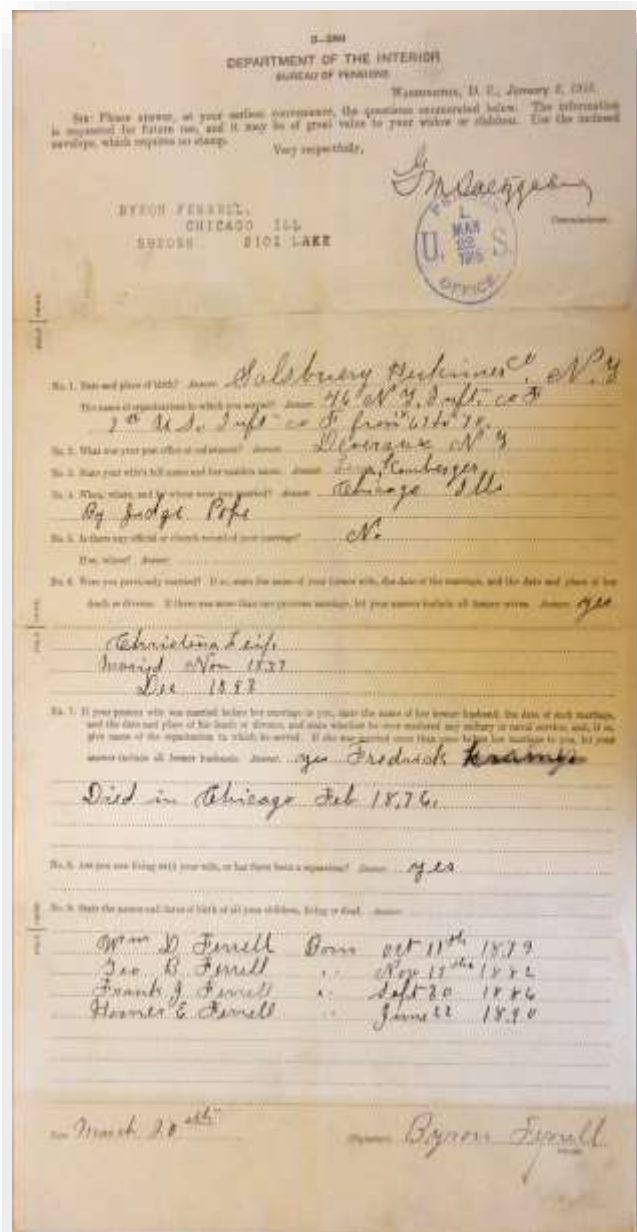 DEPARTMENT OF THE INTERIOR
BUREAU OF PENSIONS
WASHINGTON, D. C., January 2, 1915.
SIR: Please answer, at your earliest convenience, the questions enumerated below. The information
is requested for future use, and it may be of great value to your widow or children. Use the inclosed
envelope, which requires no stamp.
Very respectfully,
Commissioner.
BYRON FERRELL,
CHICAGO ILL
2102 LAKE
PENSION
L
MAR
22
1915
U. S.
OFFICE
No. 1. Date and place of birth? Answer. Salsbuery Herkimer Co, N. Y
The name of organizations in which you served? Answer. 76 N Y. Inft. co F
7th U.S. Inft co F from 67 to 70.
No. 2. What was your post office at enlistment? Answer. Deveraux N Y
No. 3. State your wife's full name and her maiden name. Answer.
No. 4. When, where, and by whom were you married? Answer. Chicago Ills
By Judge Pope
No. 5. Is there any official or church record of your marriage? No.
If so, where? Answer.
No. 6. Were you previously married? If so, state the name of your former wife, the date of the marriage, and the date and place of her
death or divorce. If there was more than one previous marriage, let your answer include all former wives. Answer. yes
Christina
Maried Nov 1877
Dec 1893
No. 7. If your present wife was married before her marriage to you, state the name of her former husband, the date of such marriage,
and the date and place of his death or divorce, and state whether he ever rendered any military or naval service, and, if so,
give name of the organization in which he served. If she was married more than once before her marriage to you, let your
answer include all former husbands. Answer. yes Fredrick
Died in Chicago Feb 1876.
No. 8. Are you now living with your wife, or has there been a separation? Answer. yes
No. 9. State the names and dates of birth of all your children, living or dead. Answer.
Wm D Ferrell Born oct 11th 1879
Geo B Ferrell " Nov 17th 1882
Frank J Ferrell " Sept 20 1886
Homer E Ferrell " June 22 1890
Date March 20th
(Signature) Byron Ferrell